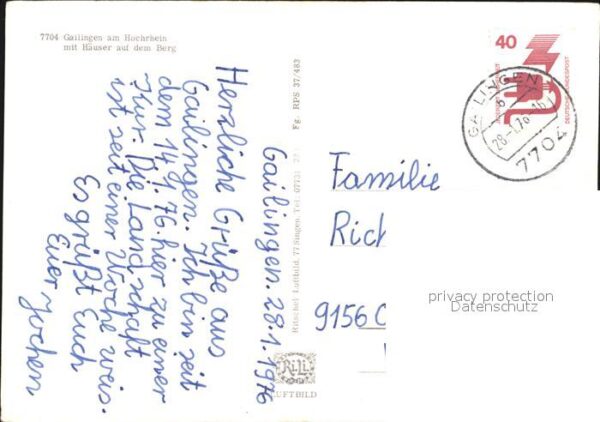 7704 Gailingen am Hochrhein
mit Häuser auf dem Berg
Gailingen. 28.1.1976
Herzliche Grüße aus
Gailingen. Ich bin seit
dem 14.1.76. hier zu einer
Kur. Die Landschaft
ist seit einer Woche weis.
Es grüßt Euch
Euer Jochen
Fg. RPS 37/483
Ritschel Luftbild, 77 Singen, Tel. 07731
RiLi
LUFTBILD
40
DEUTSCHE BUNDESPOST
GAILINGEN
28.-1.76-16
7704
Familie
Rich
9156
privacy protection
Datenschutz